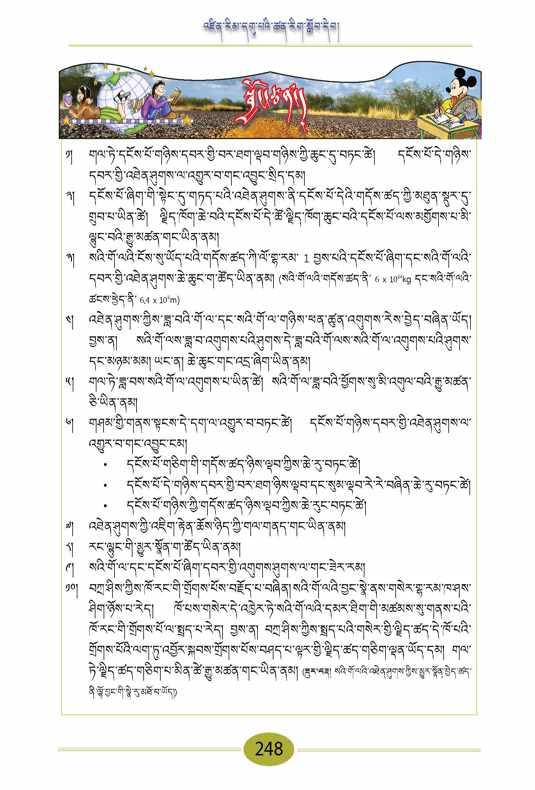 འཛིན་རིམ་དགུ་པའི་ཚན་རིག་སློབ་དེབ།
སྦྱོང་ཚན།
༡། གལ་ཏེ་དངོས་པོ་གཉིས་དབར་གྱི་བར་ཐག་ལྡབ་གཉིས་ཀྱི་ཆུང་དུ་བཏང་ཚེ། དངོས་པོ་དེ་གཉིས་
དབར་གྱི་འཐེན་ཤུགས་ལ་འགྱུར་བ་གང་འབྱུང་སྲིད་དམ།
༢། དངོས་པོ་ཞིག་གི་སྟེང་དུ་གཏད་པའི་འཐེན་ཤུགས་ནི་དངོས་པོ་དེའི་གདོས་ཚད་ཀྱི་མཐུན་སྡུར་དུ་
གྲུབ་པ་ཡིན་ཚེ། ལྗིད་ཁོག་ཆེ་བའི་དངོས་པོ་དེ་ཚོ་ལྗིད་ཁོག་ཆུང་བའི་དངོས་པོ་ལས་མགྱོགས་པ་མི་
ལྷུང་བའི་རྒྱུ་མཚན་གང་ཡིན་ནམ།
༣། སའི་གོ་ལའི་ངོས་སུ་ཡོད་པའི་གདོས་ཚད་ཀི་ལོ་རྒྷ་རམ་ 1 བྱས་པའི་དངོས་པོ་ཞིག་དང་སའི་གོ་ལའི་
དབར་གྱི་འཐེན་ཤུགས་ཆེ་ཆུང་ག་ཚོད་ཡིན་ནམ། (སའི་གོ་ལའི་གདོས་ཚད་ནི་ 6 x 10²⁴kg དང་སའི་གོ་ལའི་
ཚངས་ཕྱེད་ནི་ 6.4 x 10⁶m)
༤། འཐེན་ཤུགས་ཀྱིས་ཟླ་བའི་གོ་ལ་དང་སའི་གོ་ལ་གཉིས་ཕན་ཚུན་འགུགས་རེས་བྱེད་བཞིན་ཡོད།
བྱས་ན། སའི་གོ་ལས་ཟླ་བ་འགུགས་པའི་ཤུགས་དེ་ཟླ་བའི་གོ་ལས་སའི་གོ་ལ་འགུགས་པའི་ཤུགས་
དང་མཉམ་མམ། ཡང་ན། ཆེ་ཆུང་གང་འདྲ་ཞིག་ཡིན་ནམ།
༥། གལ་ཏེ་ཟླ་བས་སའི་གོ་ལ་འགུགས་པ་ཡིན་ཚེ། སའི་གོ་ལ་ཟླ་བའི་ཕྱོགས་སུ་མི་འགུལ་བའི་རྒྱུ་མཚན་
ཅི་ཡིན་ནམ།
༦། གཤམ་གྱི་གནས་སྟངས་དེ་དག་ལ་འགྱུར་བ་བཏང་ཚེ། དངོས་པོ་གཉིས་དབར་གྱི་འཐེན་ཤུགས་ལ་
འགྱུར་བ་གང་འབྱུང་ངམ།
• དངོས་པོ་གཅིག་གི་གདོས་ཚད་ཉིས་ལྡབ་ཀྱིས་ཆེ་རུ་བཏང་ཚེ།
• དངོས་པོ་དེ་གཉིས་དབར་གྱི་བར་ཐག་ཉིས་ལྡབ་དང་སུམ་ལྡབ་རེ་རེ་བཞིན་ཆེ་རུ་བཏང་ཚེ།
• དངོས་པོ་གཉིས་ཀྱི་གདོས་ཚད་ཉིས་ལྡབ་ཀྱིས་ཆེ་རུང་བཏང་ཚེ།
༧། འཐེན་ཤུགས་ཀྱི་འཇིག་རྟེན་ཆོས་ཉིད་ཀྱི་གལ་གནད་གང་ཡིན་ནམ།
༨། རང་ལྷུང་གི་མྱུར་སྣོན་ག་ཚོད་ཡིན་ནམ།
༩། སའི་གོ་ལ་དང་དངོས་པོ་ཞིག་དབར་གྱི་འགུགས་ཤུགས་ལ་གང་ཟེར་རམ།
༡༠། བཀྲ་ཤིས་ཀྱིས་ཁོ་རང་གི་གྲོགས་པོས་བརྗོད་པ་བཞིན། སའི་གོ་ལའི་བྱང་སྣེ་ནས་གསེར་རྒྷ་རམ་ཁ་ཤས་
ཤིག་ཉོས་པ་རེད། ཁོ་པས་གསེར་དེ་འཁྱེར་ཏེ་སའི་གོ་ལའི་དམར་ཐིག་གི་མཚམས་སུ་གནས་པའི་
ཁོ་རང་གི་གྲོགས་པོ་ལ་སྤྲད་པ་རེད། བྱས་ན། བཀྲ་ཤིས་ཀྱིས་སྤྲད་པའི་གསེར་གྱི་ལྗིད་ཚད་དེ་ཁོ་པའི་
གྲོགས་པོའི་ལག་ཏུ་འབྱོར་སྐབས་གྲོགས་པོས་བཤད་པ་ལྟར་གྱི་ལྗིད་ཚད་གཅིག་ལྡན་ཡོད་དམ། གལ་
ཏེ་ལྗིད་ཚད་གཅིག་པ་མིན་ཚེ་རྒྱུ་མཚན་གང་ཡིན་ནམ། (ཟུར་བརྡ། སའི་གོ་ལའི་འཐེན་ཤུགས་ཀྱིས་མྱུར་སྣོན་བྱེད་ཚད་
ནི་ལྷོ་བྱང་གི་སྣེ་རུ་མཐོ་བ་ཡོད།)
248